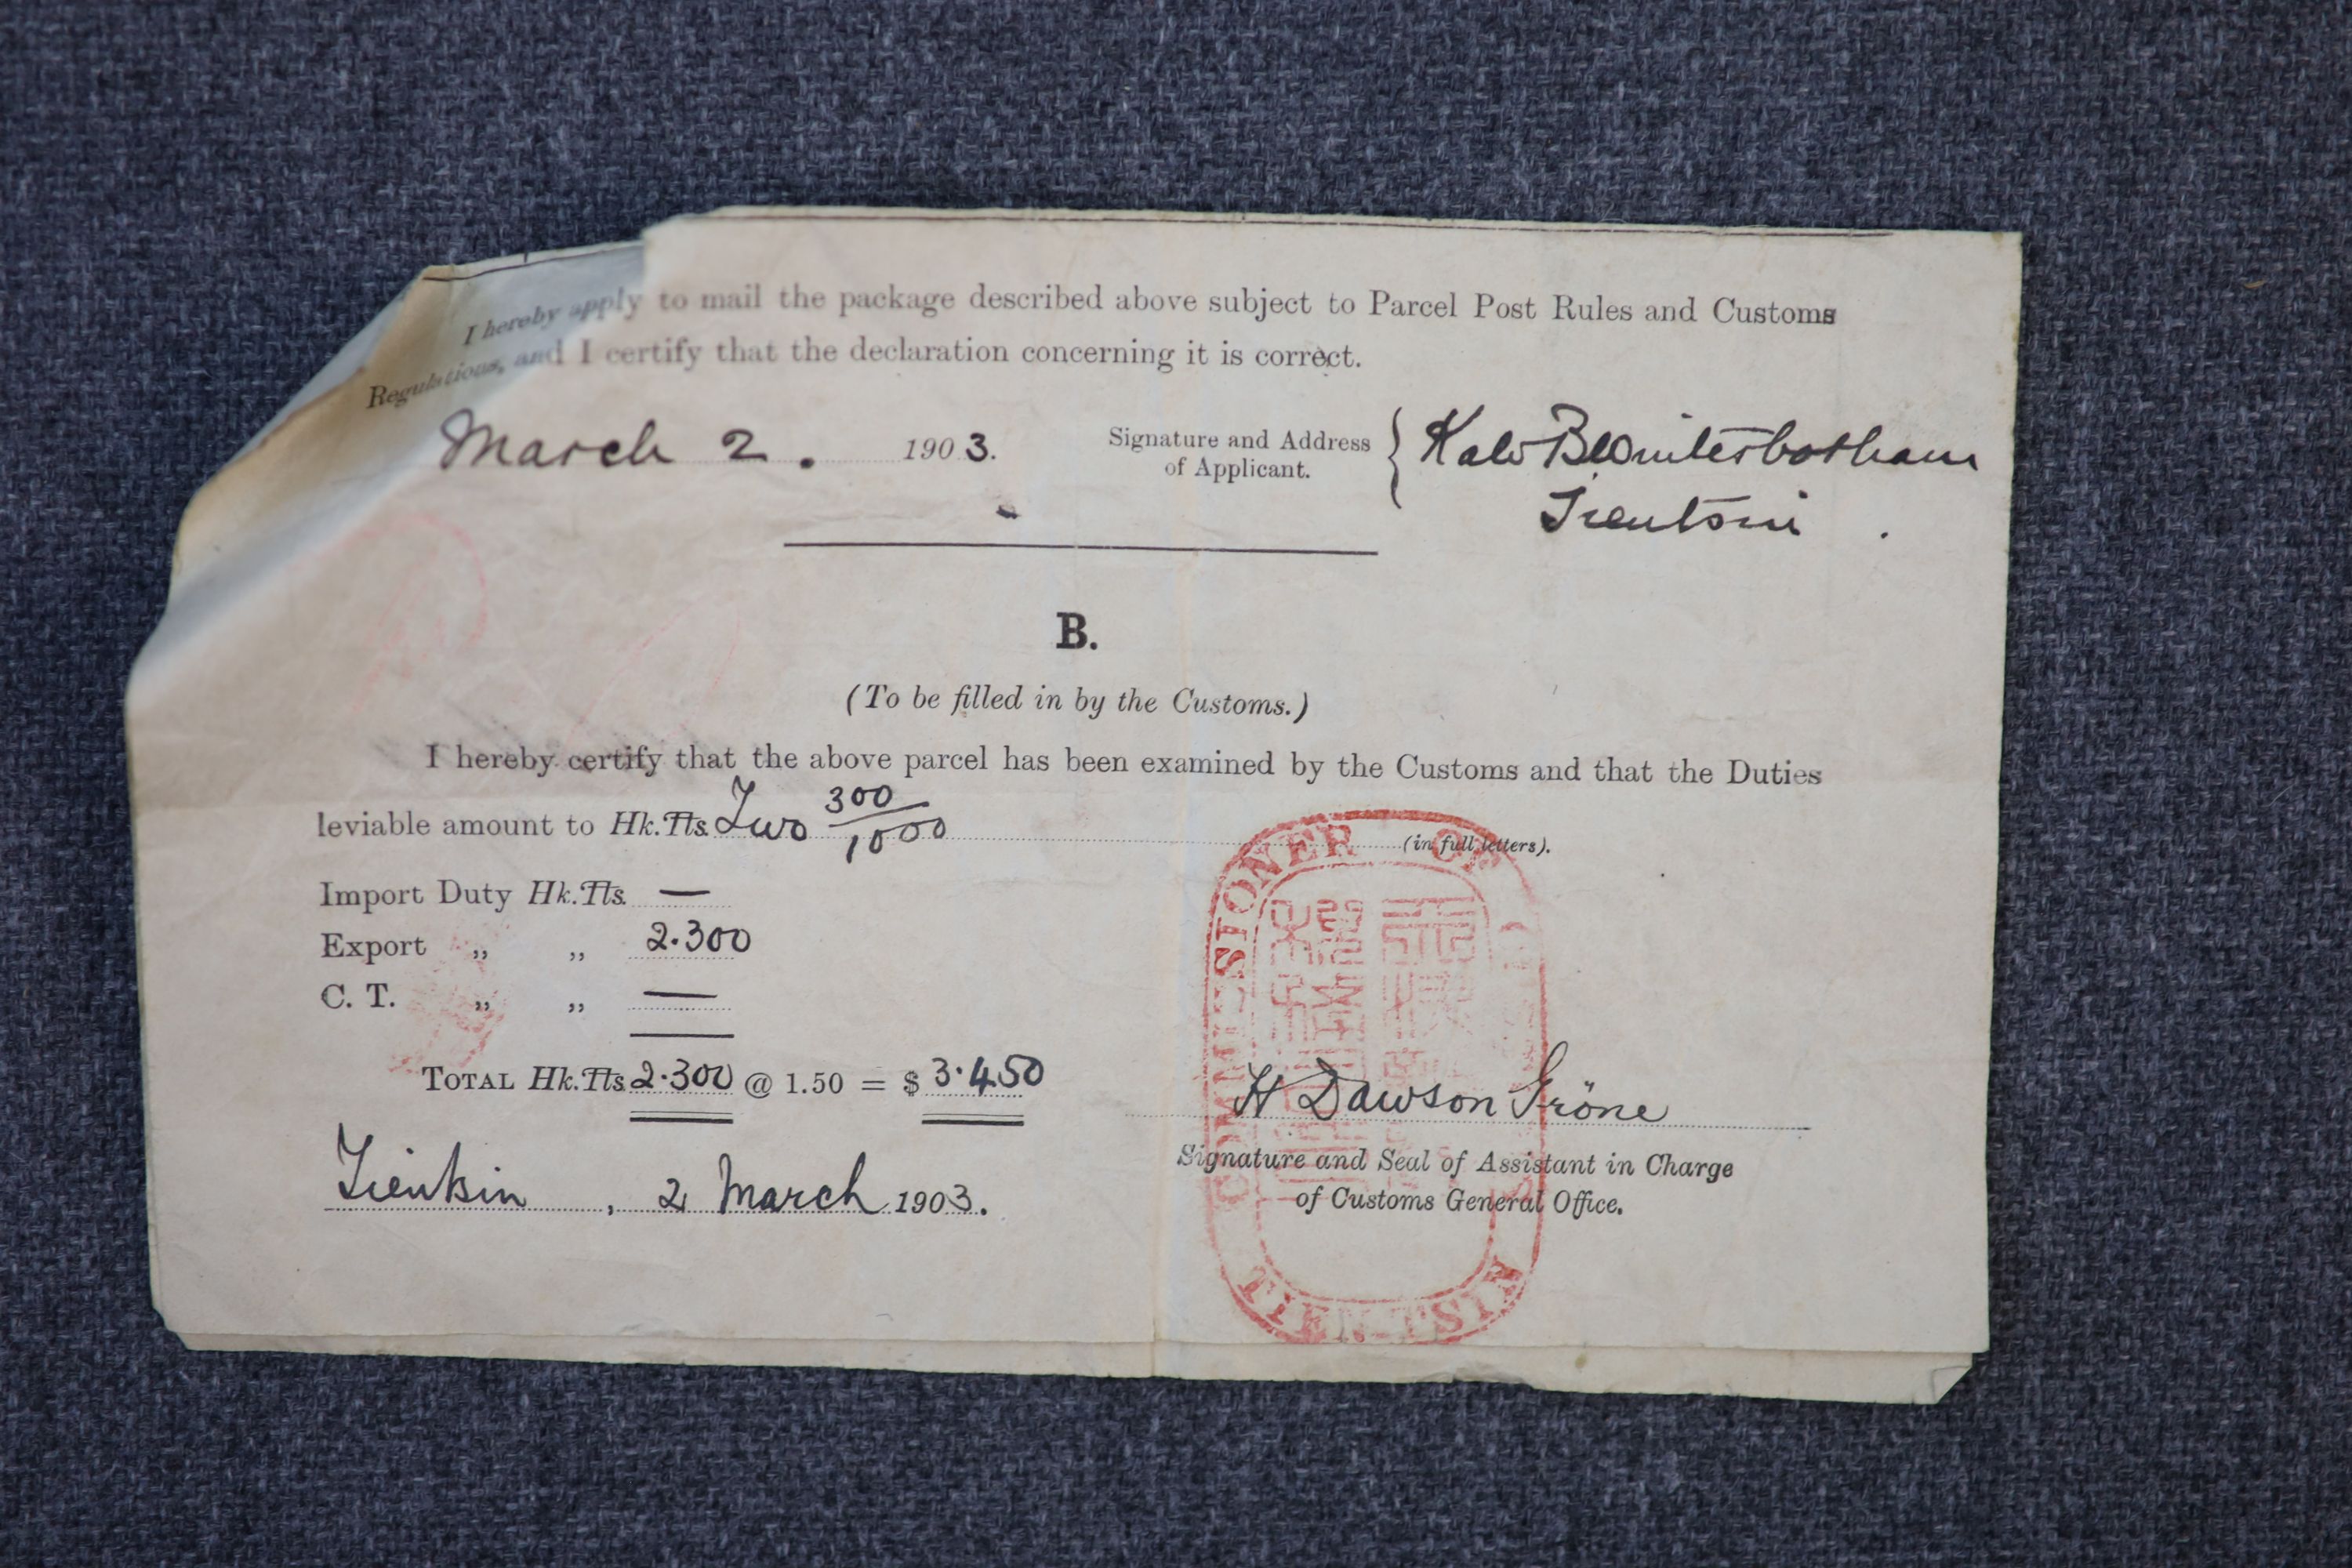 I hereby apply to mail the package described above subject to Parcel Post Rules and Customs
Regulations, and I certify that the declaration concerning it is correct.
March 2. 1903.
Signature and Address
of Applicant.
Winterbotham
Tientsin
B.
(To be filled in by the Customs.)
I hereby certify that the above parcel has been examined by the Customs and that the Duties
leviable amount to Hk.Tls. Two 300/1,000 (in full letters).
Import Duty Hk.Tls. —
Export „ „ 2.300
C. T. „ „ —
TOTAL Hk.Tls. 2.300 @ 1.50 = $ 3.450
H Dawson Gröne
Signature and Seal of Assistant in Charge
of Customs General Office.
Tientsin, 2 March 1903.
COMMISSIONER OF
TIENTSIN